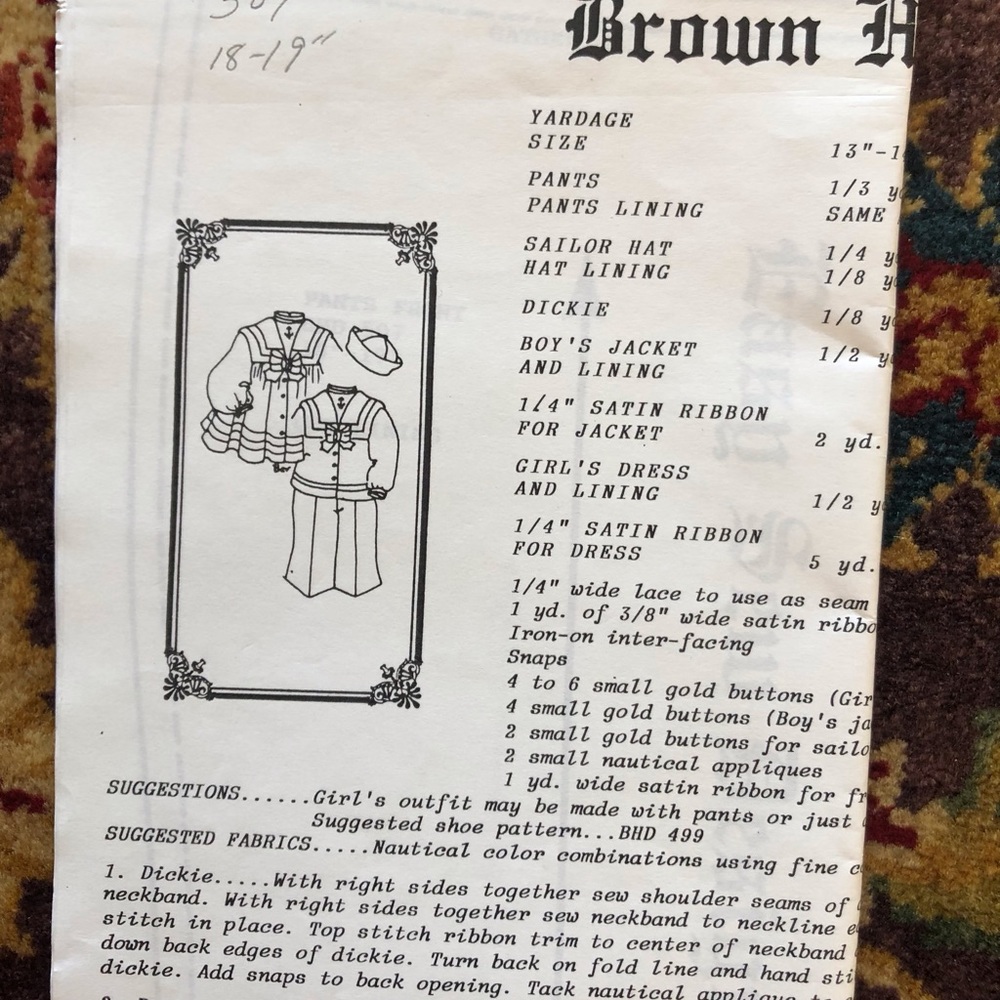 18-19"
Brown H
YARDAGE
SIZE 13"-1
PANTS 1/3 y
PANTS LINING SAME
SAILOR HAT 1/4 y
HAT LINING 1/8 y
DICKIE 1/8 y
BOY'S JACKET 1/2 y
AND LINING
1/4" SATIN RIBBON
FOR JACKET 2 yd.
GIRL'S DRESS
AND LINING 1/2 y
1/4" SATIN RIBBON
FOR DRESS 5 yd.
1/4" wide lace to use as seam
1 yd. of 3/8" wide satin ribbo
Iron-on inter-facing
Snaps
4 to 6 small gold buttons (Gir
4 small gold buttons (Boy's ja
2 small gold buttons for sailo
2 small nautical appliques
1 yd. wide satin ribbon for fr
SUGGESTIONS......Girl's outfit may be made with pants or just
Suggested shoe pattern...BHD 499
SUGGESTED FABRICS.....Nautical color combinations using fine c
1. Dickie.....With right sides together sew shoulder seams of
neckband. With right sides together sew neckband to neckline e
stitch in place. Top stitch ribbon trim to center of neckband
down back edges of dickie. Turn back on fold line and hand sti
dickie. Add snaps to back opening. Tack nautical applique to